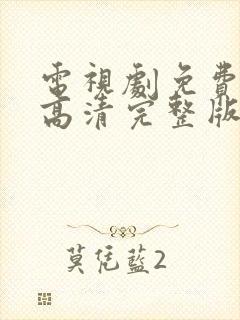 電視劇免費
高清完整版
莫凭藍2